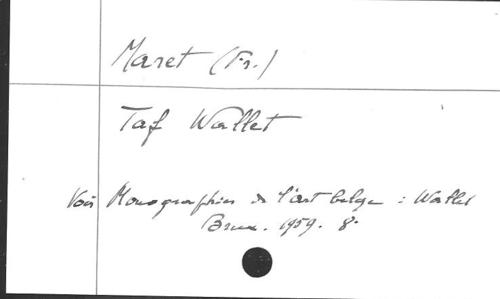 Maret (Fr.)
Taf Wallet
Voir Monographies de l'art belge : Wallet
Brux. 1959. 8°